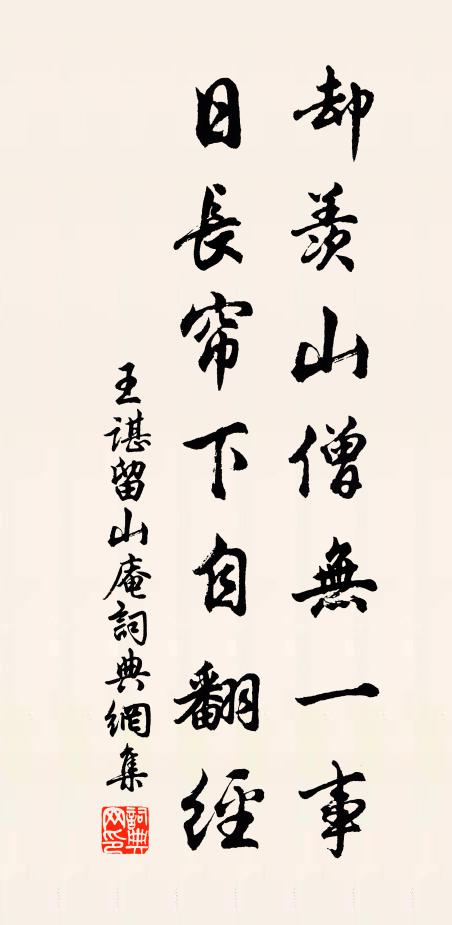 却羨山僧無一事
日長帘下自翻經
王諶留山庵詞典網集
詞典網印